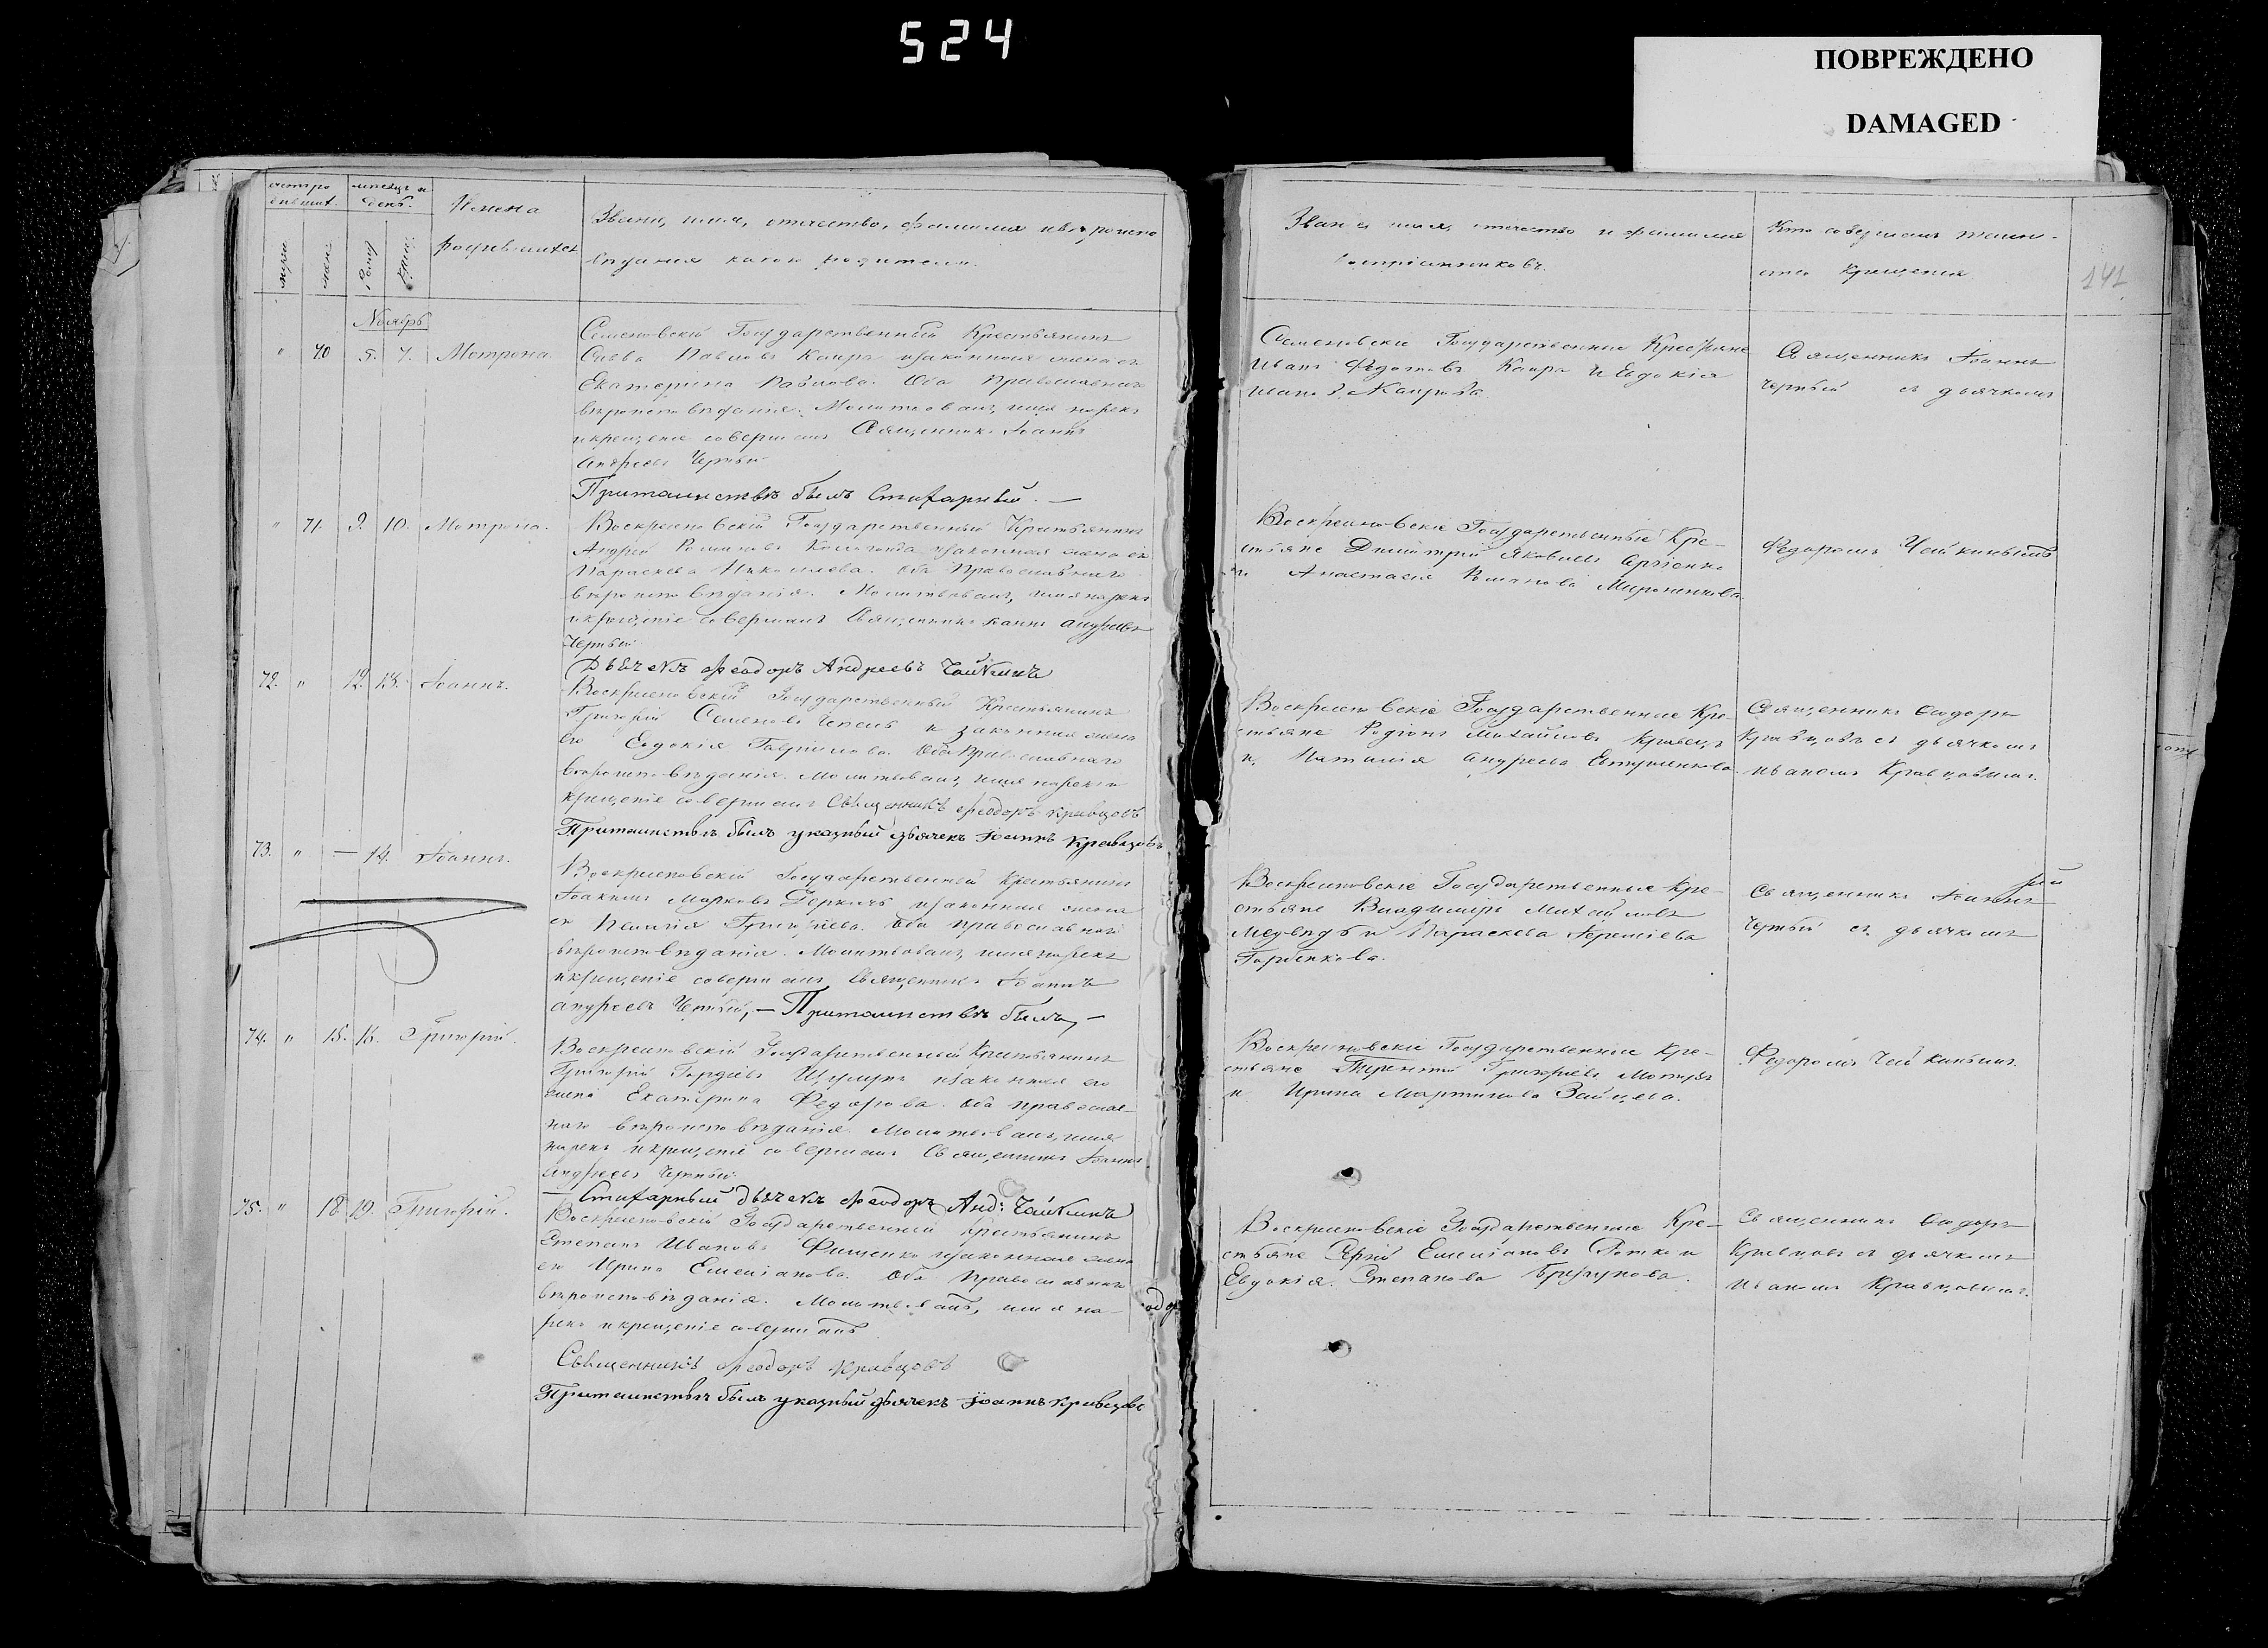 524
ПОВРЕЖДЕНО
DAMAGED
141
Имена
родившихся
Званіе, имя, отчество, фамилия и вѣроиспо
вѣданія какого родители.
Званіе имя, отчество и фамилия
воспріемниковъ.
Кто совершалъ таин-
ство Крещенія
Ноябрь
" 70 5. 7. Мотрона.
Семеновскій Государственный Крестьянинъ
Савва Павловъ Каира и законная жена его
Екатерина Павлова. Оба Православнаго
вѣроисповѣданія. Молитвовалъ, имя нарекъ
и крещеніе совершалъ Священникъ Іоаннъ
Андреевъ Чертый
При таинствѣ былъ Стихарный. —
Семеновскіе Государственные Крестьяне
Иванъ Федотовъ Каира и Евдокія
Иванова Каирова
Священникъ Іоаннъ
Чертый съ дьячкомъ
" 71. 9. 10. Мотрона.
Воскресеновскій Государственный Крестьянинъ
Андрей Романовъ законная жена его
Параскева Николаева. Оба Православнаго
вѣроисповѣданія. Молитвовалъ, имя нарекъ
и крещеніе совершалъ Священникъ Іоаннъ Андреевъ
Чертый
Дьячекъ Феодоръ Андреевъ Чайкинъ
Воскресеновскіе Государственные Кре-
стьяне Димитрій Яковлевъ
и Анастасія Романова Мироненкова.
Федоромъ Чайкинымъ
72. " 12. 13. Іоаннъ.
Воскресеновскій Государственный Крестьянинъ
Григорій Семеновъ Чепель и законная жена
его Евдокія Гаврилова. Оба Православнаго
вѣроисповѣданія. Молитвовалъ, имя нарекъ и
крещеніе совершалъ Священникъ Феодоръ Кравцовъ
При таинствѣ былъ указный дьячекъ Іоаннъ Кравцовъ
Воскресеновскіе Государственные Кре-
стьяне Родіонъ Михайловъ Кравецъ
и Наталія Андреева Евтушенкова.
Священникъ Феодоръ
Кравцовъ съ дьячкомъ
Иваномъ Кравцовымъ.
73. " — 14. Іоаннъ.
Воскресеновскій Государственный Крестьянинъ
Іоакимъ Марковъ и законная жена
его Пелагія Григорьева. Оба православнаго
вѣроисповѣданія. Молитвовалъ, имя нарекъ
и крещеніе совершалъ Священникъ Іоаннъ
Андреевъ Чертый, — При таинствѣ былъ, —
Воскресеновскіе Государственные Кре-
стьяне Владиміръ Михайловъ
Медвѣдь и Параскева Іереміева
Горбенкова.
Священникъ Іоаннъ
Чертый съ дьячкомъ
74. " 15. 16. Григорій.
Воскресеновскій Государственный Крестьянинъ
Григорій Гордіевъ и законная его
жена Екатерина Федорова. Оба православ-
наго вѣроисповѣданія. Молитвовалъ, имя
нарекъ и крещеніе совершалъ Священникъ Іоаннъ
Андреевъ Чертый
— Стихарный дьячекъ Феодоръ Анд: Чайкинъ
Воскресеновскіе Государственные Кре-
стьяне Терентій Григорьевъ
и Ирина Мартинова Зайцева.
Федоромъ Чайкинымъ.
75. " 18. 19. Григорій.
Воскресеновскій Государственный Крестьянинъ
Степанъ Ивановъ Фищенко и законная жена
его Ирина Емеліанова. Оба Православнаго
вѣроисповѣданія. Молитвовалъ, имя на-
рекъ и крещеніе совершалъ
Священникъ Феодоръ Кравцовъ
При таинствѣ былъ указный дьячекъ Іоаннъ Кравцовъ
Воскресеновскіе Государственные Кре-
стьяне Сергій Емеліановъ и
Евдокія Степанова
Священникъ Феодоръ
Кравцовъ съ дьячкомъ
Иваномъ Кравцовымъ.